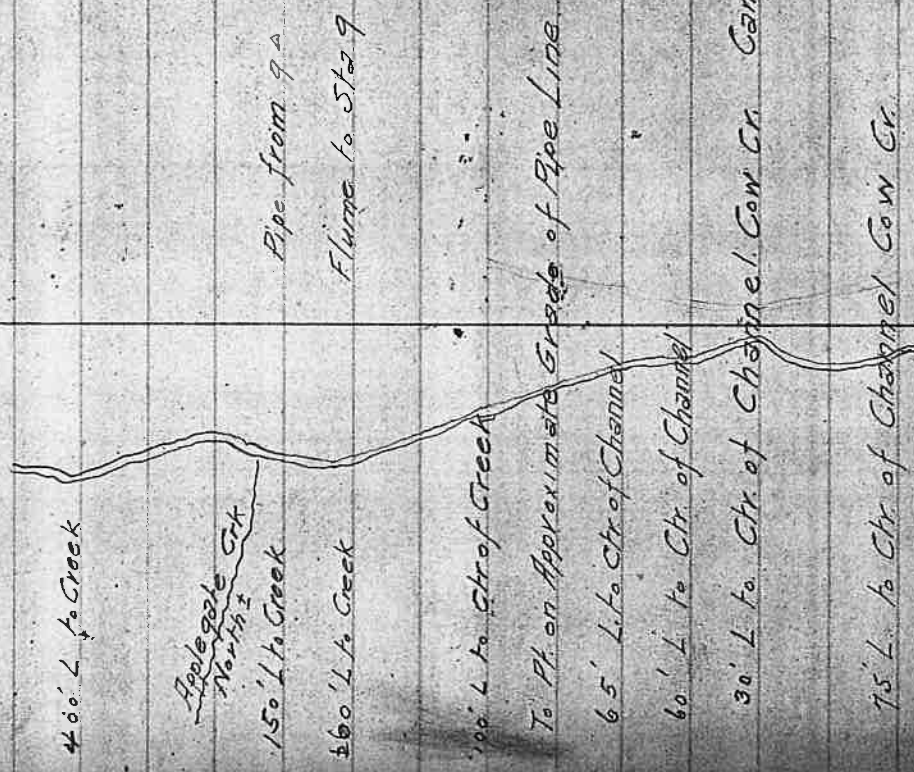 400' L to Creek
Applegate Crk
North ±
150' L to Creek
Pipe from 9
160' L to Creek
Flume to Sta 9
100' L to Ctr of Creek
To Pt. on Approximate Grade of Pipe Line
65' L. to Ctr. of Channel
60' L to Ctr. of Channel
30' L to. Ctr. of Channel. Cow Cr.
75' L. to Ctr of Channel Cow Cr.